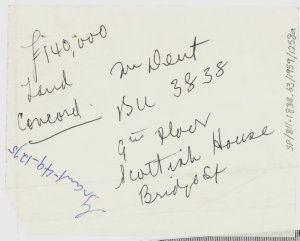 £140,000
Land
Concord.
Mr Dent
BU 3838
9th floor
Scottish House
Bridge St
SP/811-1838.63/1959/1258a